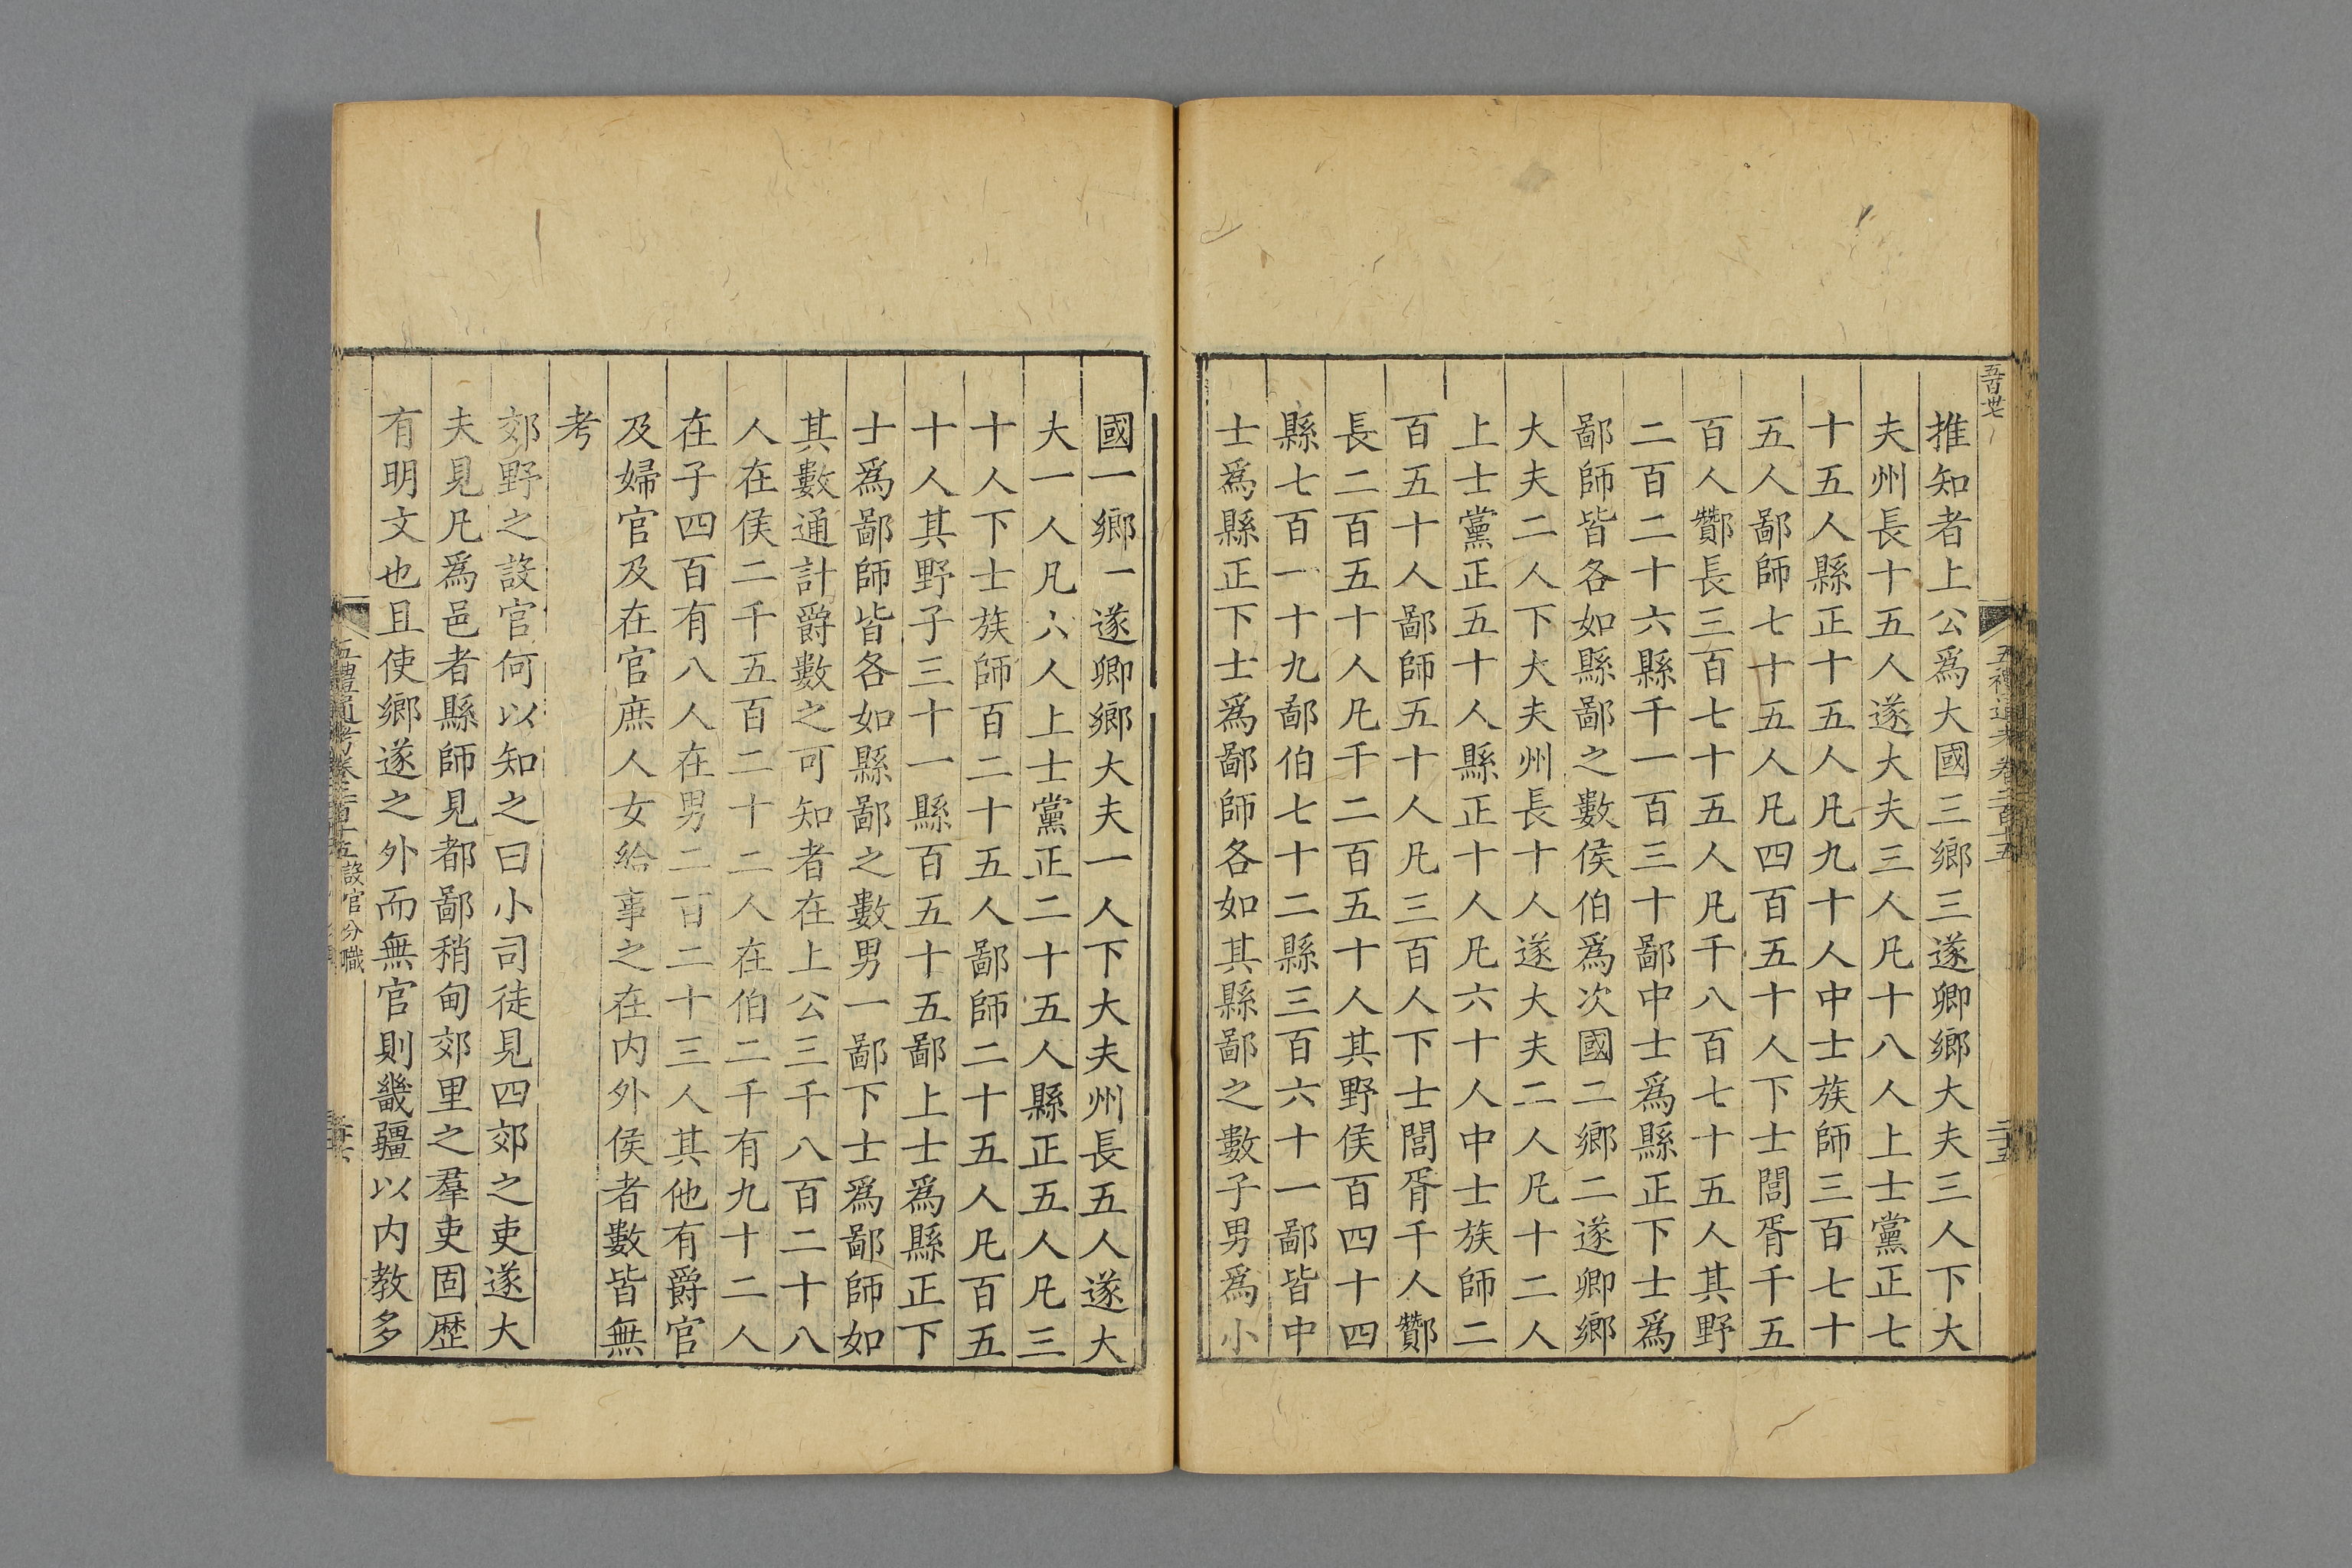 五百卅七
五禮通考卷二百十五
二十五
推知者上公爲大國三鄉三遂卿鄉大夫三人下大
夫州長十五人遂大夫三人凡十八人上士黨正七
十五人縣正十五人凡九十人中士族師三百七十
五人鄙師七十五人凡四百五十人下士閭胥千五
百人酇長三百七十五人凡千八百七十五人其野
二百二十六縣千一百三十鄙中士爲縣正下士爲
鄙師皆各如縣鄙之數侯伯爲次國二鄉二遂卿鄉
大夫二人下大夫州長十人遂大夫二人凡十二人
上士黨正五十人縣正十人凡六十人中士族師二
百五十人鄙師五十人凡三百人下士閭胥千人酇
長二百五十人凡千二百五十人其野侯百四十四
縣七百一十九鄙伯七十二縣三百六十一鄙皆中
士爲縣正下士爲鄙師各如其縣鄙之數子男爲小
國一鄉一遂卿鄉大夫一人下大夫州長五人遂大
大一人凡六人上士黨正二十五人縣正五人凡三
十人下士族師百二十五人鄙師二十五人凡百五
十人其野子三十一縣百五十五鄙上士爲縣正下
士爲鄙師皆各如縣鄙之數男一鄙下士爲鄙師如
其數通計爵數之可知者在上公三千八百二十八
人在侯二千五百二十二人在伯二千有九十二人
在子四百有八人在男二百二十三人其他有爵官
及婦官及在官庶人女給事之在内外侯者數皆無
考
郊野之設官何以知之曰小司徒見四郊之吏遂大
夫見凡爲邑者縣師見都鄙稍甸郊里之羣吏固歷
有明文也且使鄉遂之外而無官則畿疆以内教多
五禮通考卷二百十五 設官分職
二十六